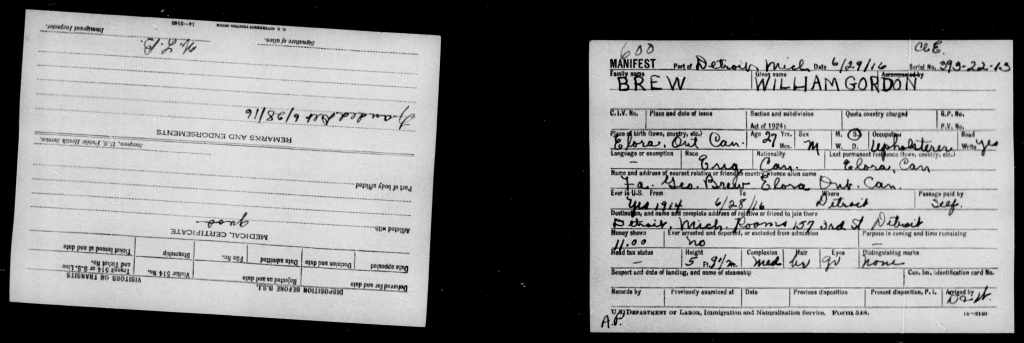 DISPOSITION BEFORE B.S.I.
Deferred for and date
Rejected as and date
Date appealed
Decision and date
Date admitted
File No.
VISITORS OR TRANSITS
Visitor 514 No.
Steamship
Transit 514 or B.S.I. Line
and Initial No.
Ticket issued at and date
MEDICAL CERTIFICATE
good
Afflicted with
Part of body afflicted
Surgeon, U.S. Public Health Service.
REMARKS AND ENDORSEMENTS
6/28/16
Signature of alien.
Immigrant Inspector.
600
CLE.
MANIFEST Port of Detroit, Mich Date 6/29/16 Serial No. 393-22-13
Family name Given name Accompanied by
BREW WILLIAM GORDON
C.I.V. No. Place and date of issue Section and subdivision Quota country charged R.P. No.
Act of 1924: P.V. No.
Place of birth (town, country, etc.) Age Yrs. Mos. Sex M. S. Occupation Read
Elora, Ont Can. 27 M W. D. Upholsterer Write Yes
Language or exemption Race Nationality Last permanent residence (town, country, etc.)
— Eng Can. Elora, Can
Name and address of nearest relative or friend in country whence alien came
Fa. Geo. Brew Elora Ont. Can.
Ever in U.S. From To Where Passage paid by
Yes 1914 6/28/16 Detroit Self.
Destination, and name and complete address of relative or friend to join there
Detroit, Mich. Rooms 157 3rd St Detroit
Money shown Ever arrested and deported, or excluded from admission Purpose in coming and time remaining
11.00 no —
Head tax status Height Complexion Hair Eyes Distinguishing marks
— 5 9½ med br gr none
Seaport and date of landing, and name of steamship Can. Im. Identification Card No.
Records by Previously examined at Date Previous disposition Present disposition, P. I. Arrived by
U.S. DEPARTMENT OF LABOR, Immigration and Naturalization Service. FORM 548.
A.P.